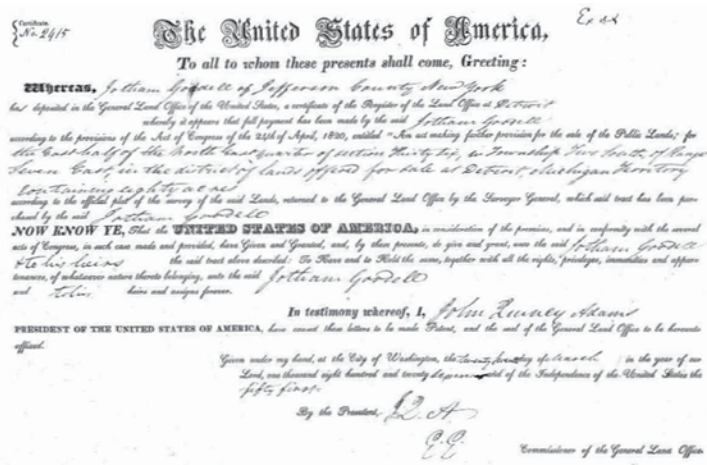 Certificate. No. 2415
Ex dd
The United States of America,
To all to whom these presents shall come, Greeting:
Whereas, Jotham Goodell of Jefferson County New York
has deposited in the General Land Office of the United States, a certificate of the Register of the Land Office at Detroit
whereby it appears that full payment has been made by the said Jotham Goodell
according to the provisions of the Act of Congress of the 24th of April, 1820, entitled "An act making further provision for the sale of the Public Lands; for
the East half of the North East quarter of section Thirty six, in Township Two South, of Range
Seven East, in the district of lands offered for sale at Detroit, Michigan Territory
Containing eighty acres
according to the official plat of the survey of the said Lands, returned to the General Land Office by the Surveyor General, which said tract has been pur-
chased by the said Jotham Goodell
NOW KNOW YE, That the UNITED STATES OF AMERICA, in consideration of the premises, and in conformity with the several
acts of Congress, in such case made and provided, have Given and Granted, and, by these presents, do give and grant, unto the said Jotham Goodell
& to his heirs the said tract above described: To Have and to Hold the same, together with all the rights, privileges, immunities and appur-
tenances, of whatsoever nature thereto belonging, unto the said Jotham Goodell
and to his heirs and assigns forever.
In testimony whereof, I, John Quincy Adams
PRESIDENT OF THE UNITED STATES OF AMERICA, have caused these letters to be made Patent, and the seal of the General Land Office to be hereunto
affixed.
Given under my hand, at the City of Washington, the day of March in the year of our
Lord, one thousand eight hundred and twenty and of the Independence of the United States the
fifty first.
By the President, J. Q. A
Commissioner of the General Land Office.